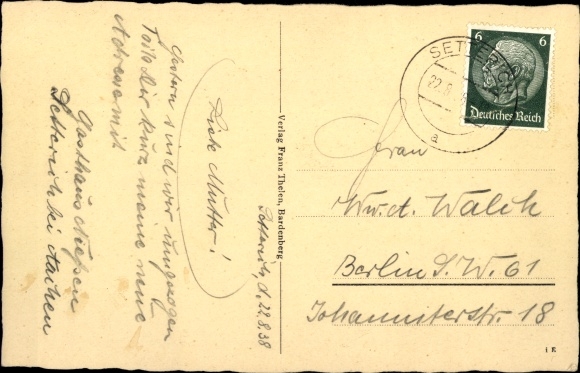 Setterich, d. 22.8.38
Liebe Mutter!
Gestern sind wir umgezogen
Teile Dir kurz meine neue
Adresse mit
Gasthaus Nießen
Setterich bei Aachen
Verlag Franz Thelen, Bardenberg
SETTERICH
22.8.
a
6 6
Deutsches Reich
Frau
Ww. A. Walch
Berlin S.W. 61
Johanniterstr. 18
i K